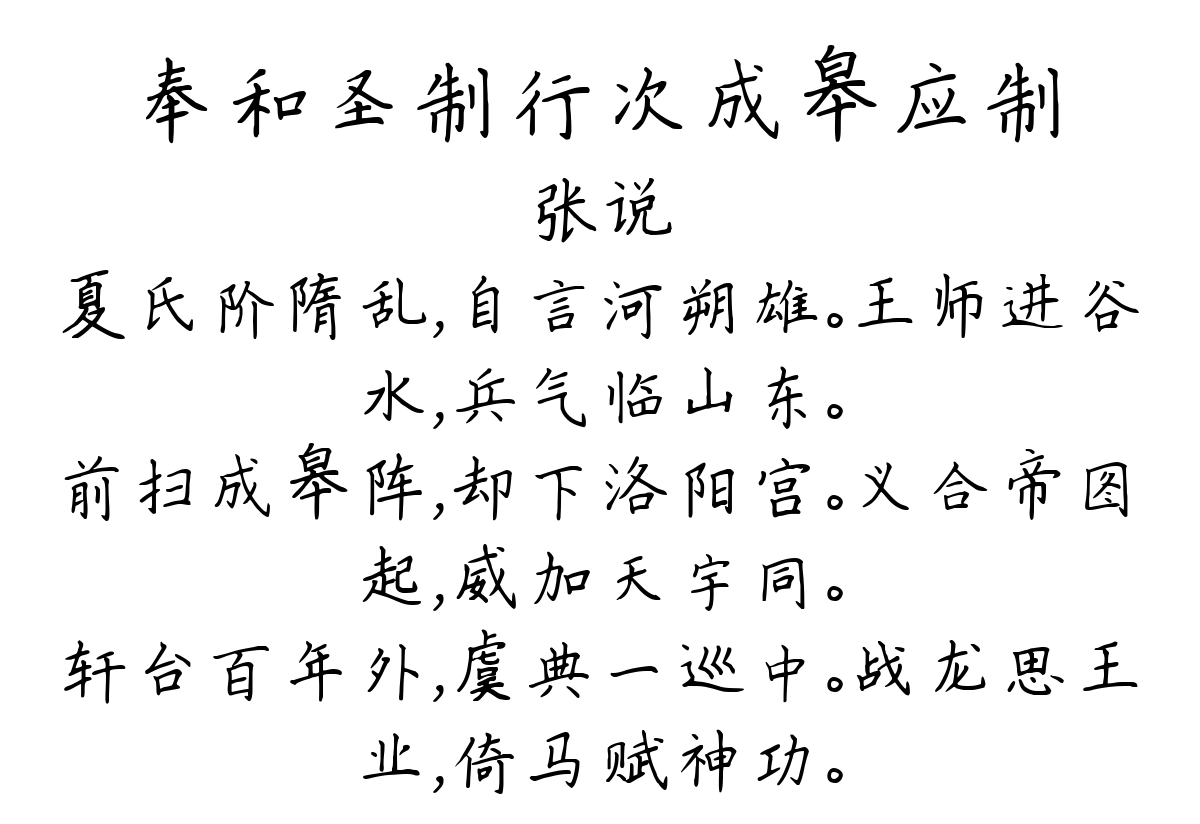 奉和圣制行次成皋应制
张说
夏氏阶隋乱,自言河朔雄。王师进谷
水,兵气临山东。
前扫成皋阵,却下洛阳宫。义合帝图
起,威加天宇同。
轩台百年外,虞典一巡中。战龙思王
业,倚马赋神功。